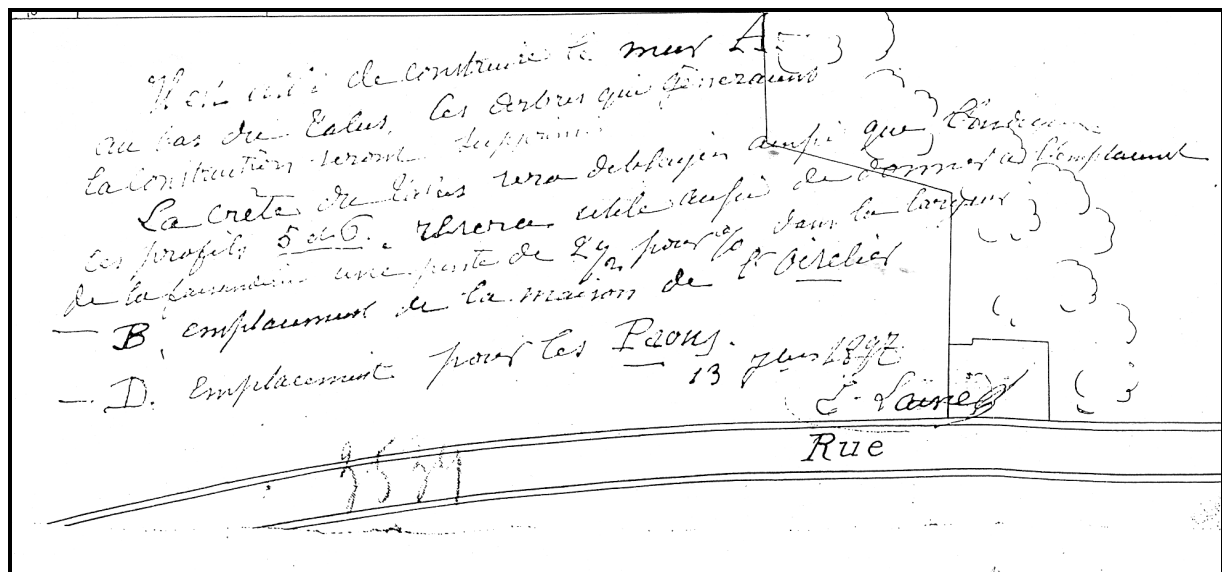 Il est utile de construire le mur A.
au bas du talus, les arbres qui gêneraient
la construction seront supprimés
La crête du talus sera déblayée ainsi que l'indiquent
les profils 5 et 6. utile aussi de donner à l'emplacement
de la faisanderie une pente de 2 1/2 pour % dans la largeur
— B, emplacement de la maison de l'Oiselier
— D. Emplacement pour les Paons.
13 1897
E. Lainé
Rue